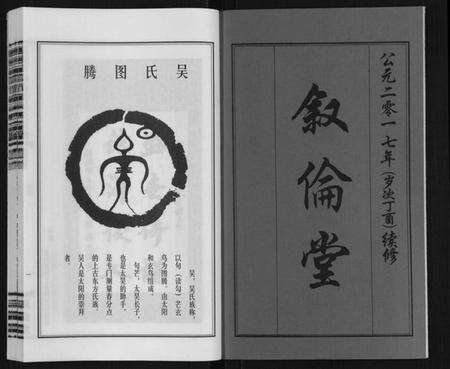 公元二零一七年(岁次丁酉)续修
叙倫堂
吴氏图腾
吴，吴氏族称，
以句（读勾）芒玄
鸟为图腾，由太阳
和玄鸟组成。
句芒，太昊长子，
也是太昊的助手，
是专门测量春分点
的上古东方氏族，
吴人是太阳的崇拜
者
一